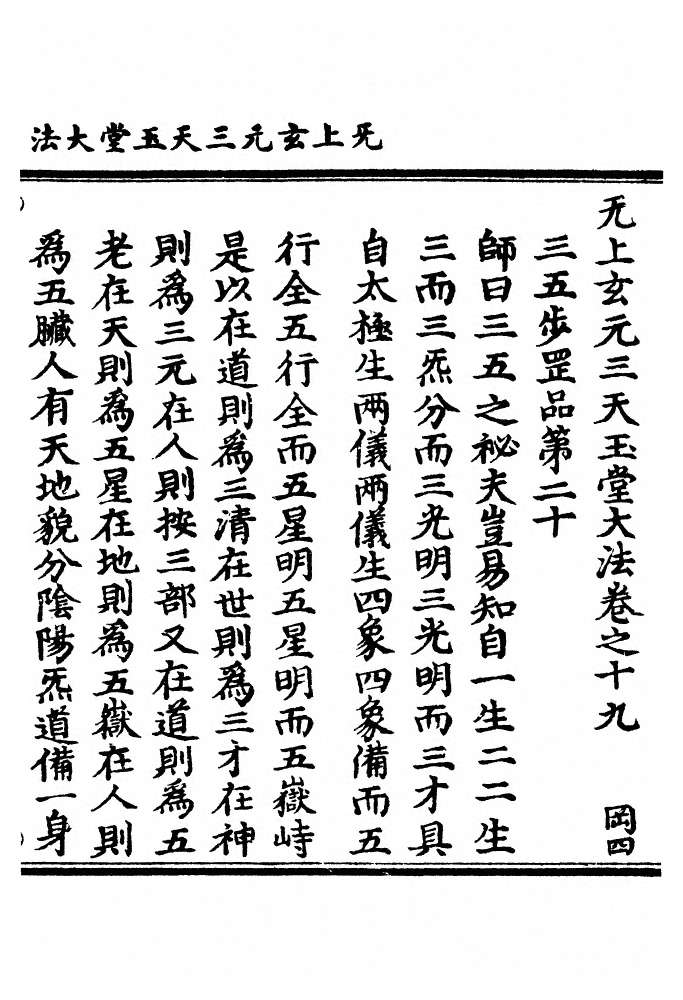 无上玄元三天玉堂大法
无上玄元三天玉堂大法卷之十九　岡四
三五步罡品第二十
師曰三五之祕夫豈易知自一生二二生
三而三炁分而三光明三光明而三才具
自太極生兩儀兩儀生四象四象備而五
行全五行全而五星明五星明而五嶽峙
是以在道則爲三清在世則爲三才在神
則爲三元在人則按三部又在道則爲五
老在天則爲五星在地則爲五嶽在人則
爲五臟人有天地貌分陰陽炁道備一身